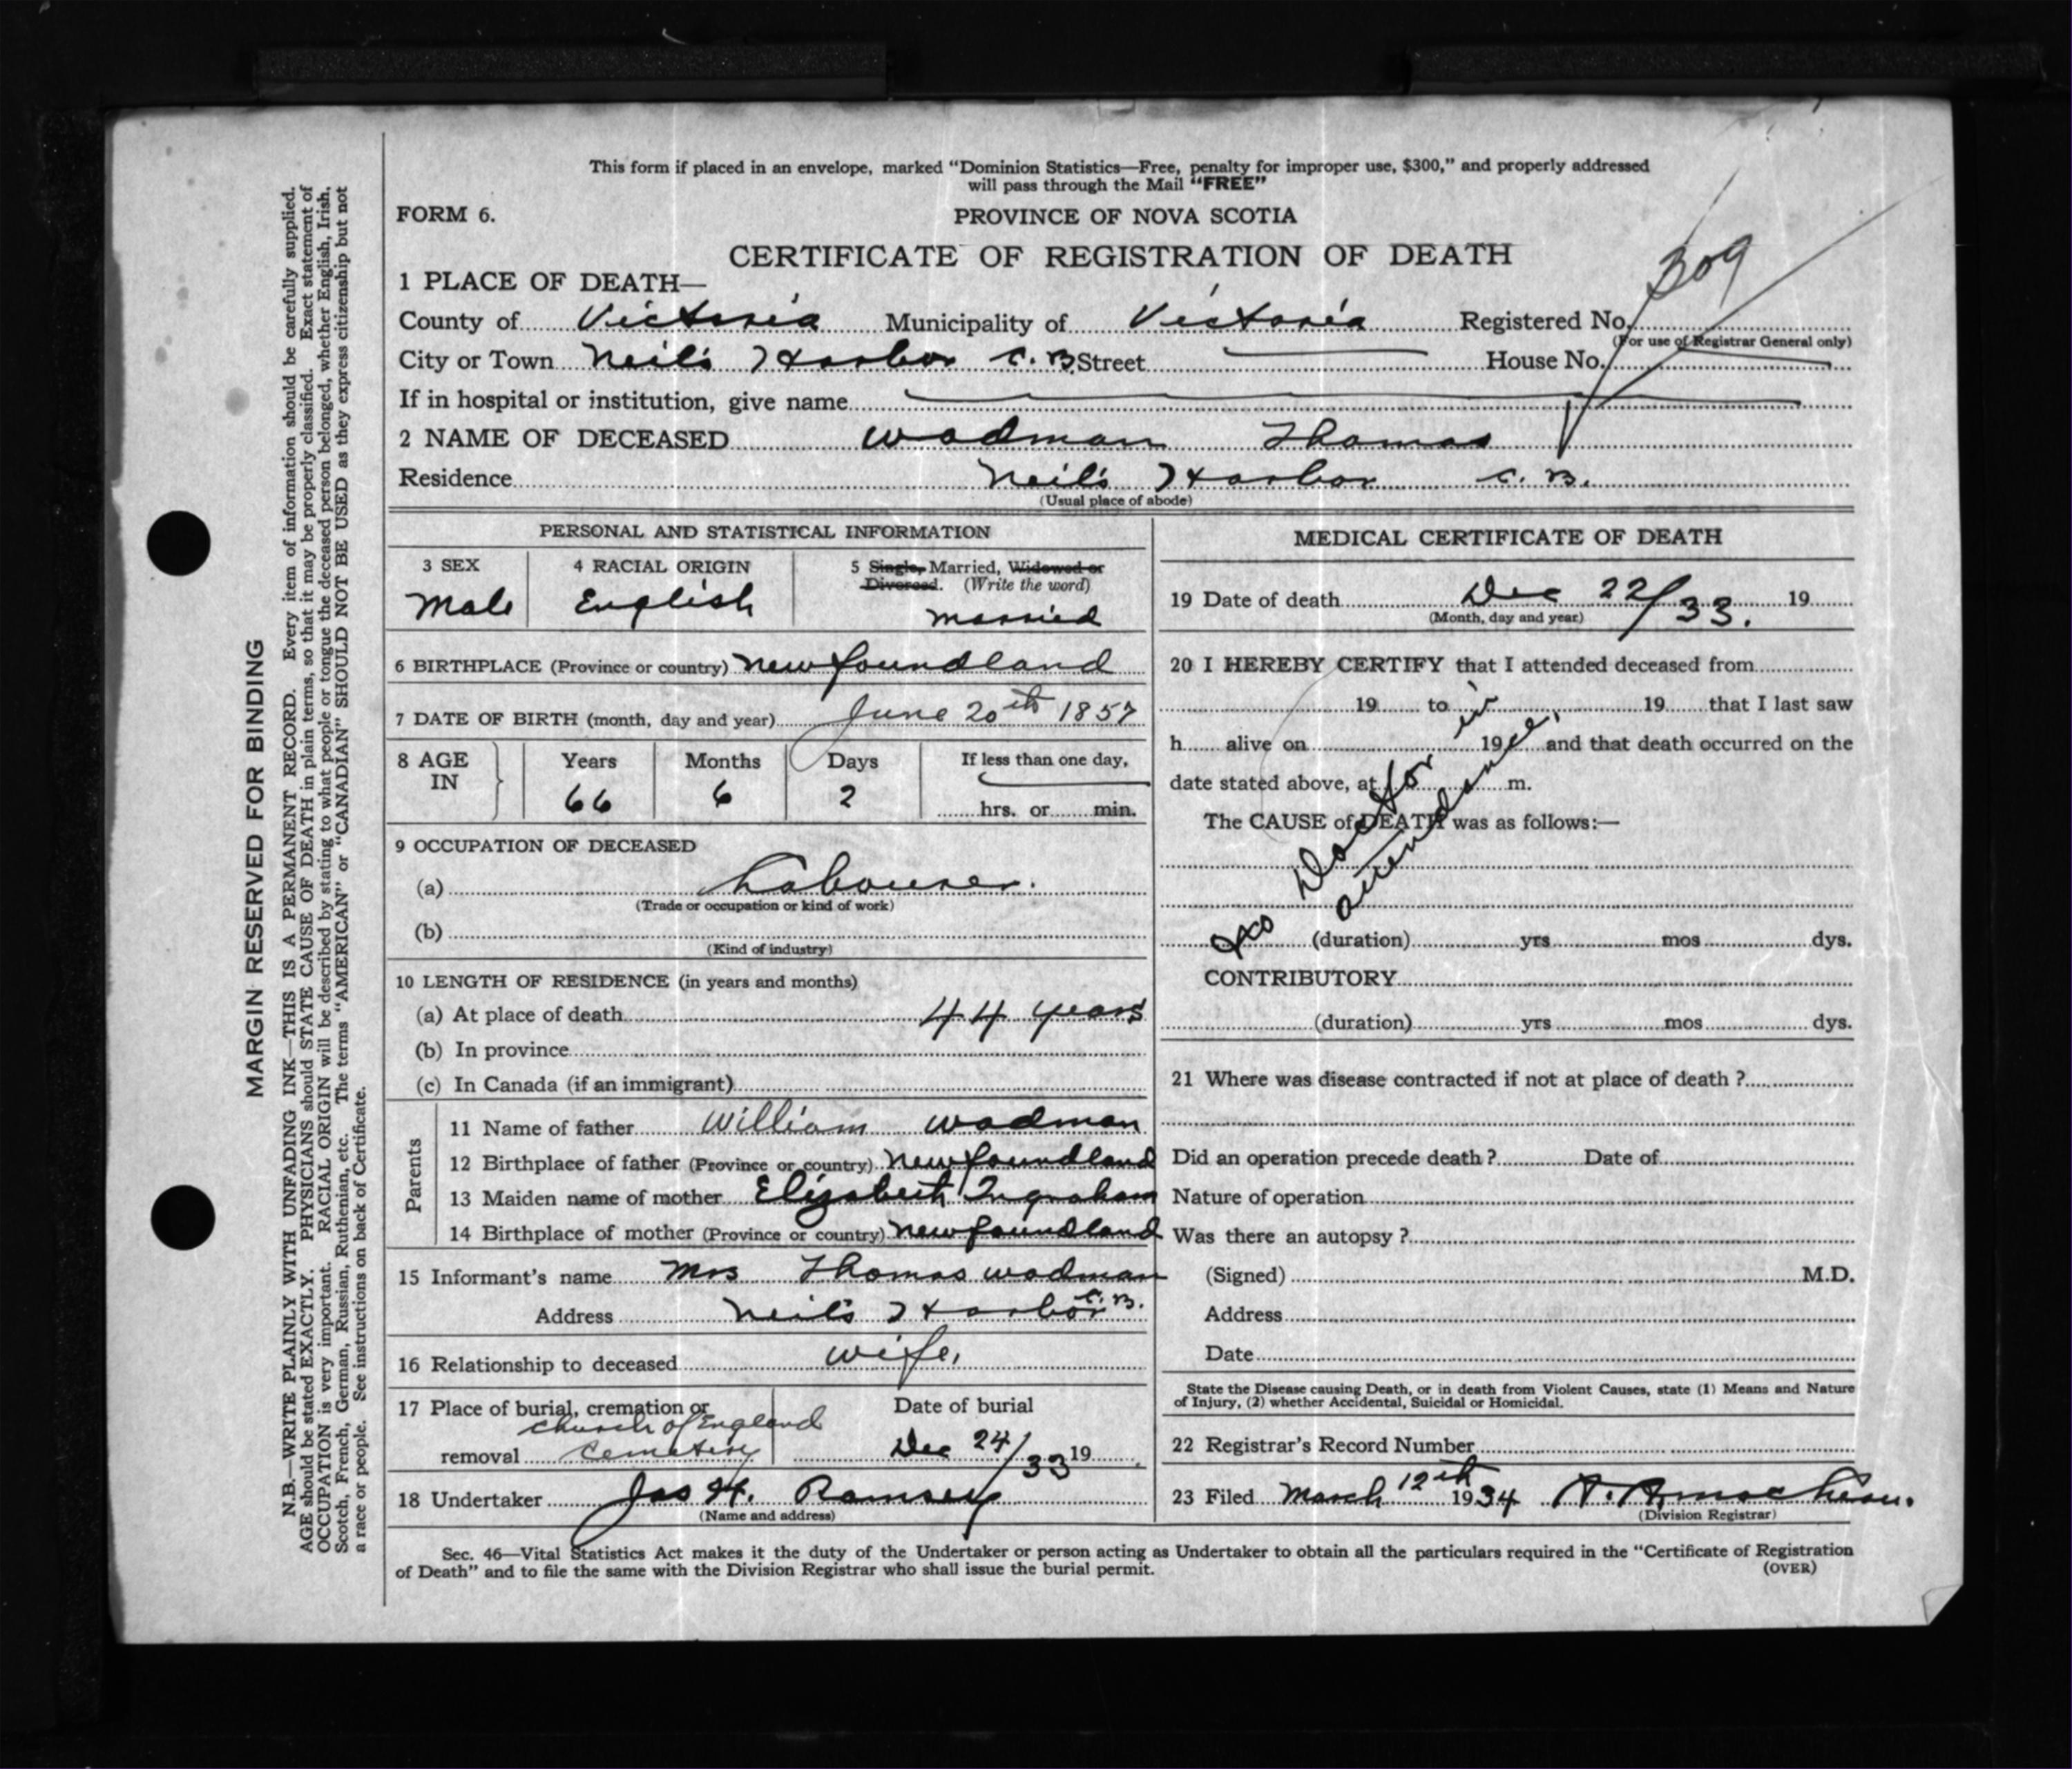 This form if placed in an envelope, marked “Dominion Statistics—Free, penalty for improper use, $300,” and properly addressed
will pass through the Mail “FREE”
FORM 6.
PROVINCE OF NOVA SCOTIA
CERTIFICATE OF REGISTRATION OF DEATH
309
1 PLACE OF DEATH—
County of Victoria Municipality of Victoria Registered No.
(For use of Registrar General only)
City or Town Neil's Harbor C. B. Street House No.
If in hospital or institution, give name
2 NAME OF DECEASED Wadman Thomas
Residence Neil's Harbor C. B.
(Usual place of abode)
PERSONAL AND STATISTICAL INFORMATION
3 SEX 4 RACIAL ORIGIN 5 Single, Married, Widowed or
Divorced. (Write the word)
Male English married
6 BIRTHPLACE (Province or country) Newfoundland
7 DATE OF BIRTH (month, day and year) June 20th 1857
8 AGE IN Years Months Days If less than one day,
66 6 2 hrs. or min.
9 OCCUPATION OF DECEASED
(a) Labourer.
(Trade or occupation or kind of work)
(b)
(Kind of industry)
10 LENGTH OF RESIDENCE (in years and months)
(a) At place of death 44 years
(b) In province
(c) In Canada (if an immigrant)
Parents
11 Name of father William Wadman
12 Birthplace of father (Province or country) Newfoundland
13 Maiden name of mother Elizabeth Ingraham
14 Birthplace of mother (Province or country) Newfoundland
15 Informant's name Mrs Thomas Wadman
Address Neil's Harbor C. B.
16 Relationship to deceased wife,
17 Place of burial, cremation or Date of burial
Church of England
removal Cemetery Dec 24/33 19
18 Undertaker Jas H. Ramsey
(Name and address)
MEDICAL CERTIFICATE OF DEATH
19 Date of death Dec 22/33. 19
(Month, day and year)
20 I HEREBY CERTIFY that I attended deceased from
19 to 19 that I last saw
h alive on 19 and that death occurred on the
date stated above, at m.
The CAUSE of DEATH was as follows:—
No Doctor in
attendance,
(duration) yrs mos dys.
CONTRIBUTORY
(duration) yrs mos dys.
21 Where was disease contracted if not at place of death ?
Did an operation precede death ? Date of
Nature of operation
Was there an autopsy ?
(Signed) M.D.
Address
Date
State the Disease causing Death, or in death from Violent Causes, state (1) Means and Nature
of Injury, (2) whether Accidental, Suicidal or Homicidal.
22 Registrar's Record Number
23 Filed March 12th 1934
(Division Registrar)
Sec. 46—Vital Statistics Act makes it the duty of the Undertaker or person acting as Undertaker to obtain all the particulars required in the “Certificate of Registration
of Death” and to file the same with the Division Registrar who shall issue the burial permit.
(OVER)
MARGIN RESERVED FOR BINDING
N.B.—WRITE PLAINLY WITH UNFADING INK—THIS IS A PERMANENT RECORD. Every item of information should be carefully supplied.
AGE should be stated EXACTLY. PHYSICIANS should STATE CAUSE OF DEATH in plain terms, so that it may be properly classified. Exact statement of
OCCUPATION is very important. RACIAL ORIGIN will be described by stating to what people or tongue the deceased person belonged, whether English, Irish,
Scotch, French, German, Russian, Ruthenian, etc. The terms “AMERICAN” or “CANADIAN” SHOULD NOT BE USED as they express citizenship but not
a race or people. See instructions on back of Certificate.